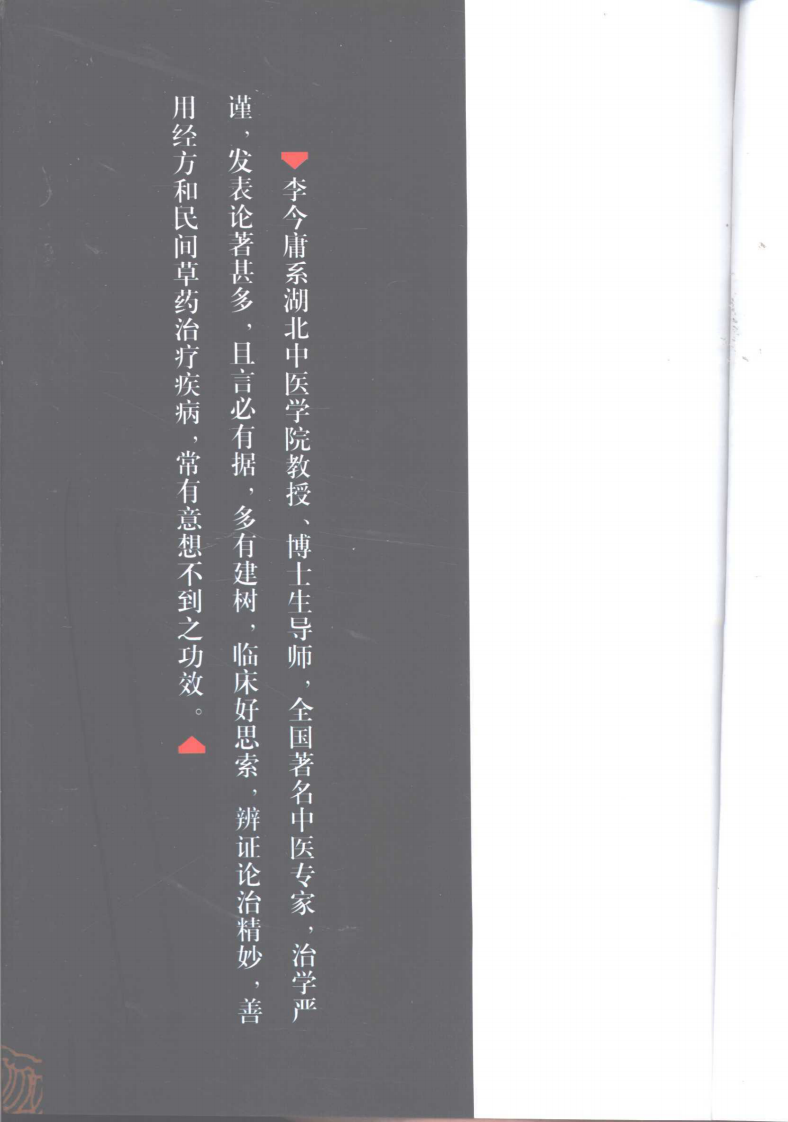 李今庸系湖北中医学院教授、博士生导师，全国著名中医专家，治学严
谨，发表论著甚多，且言必有据，多有建树，临床好思索，辨证论治精妙，善
用经方和民间草药治疗疾病，常有意想不到之功效。